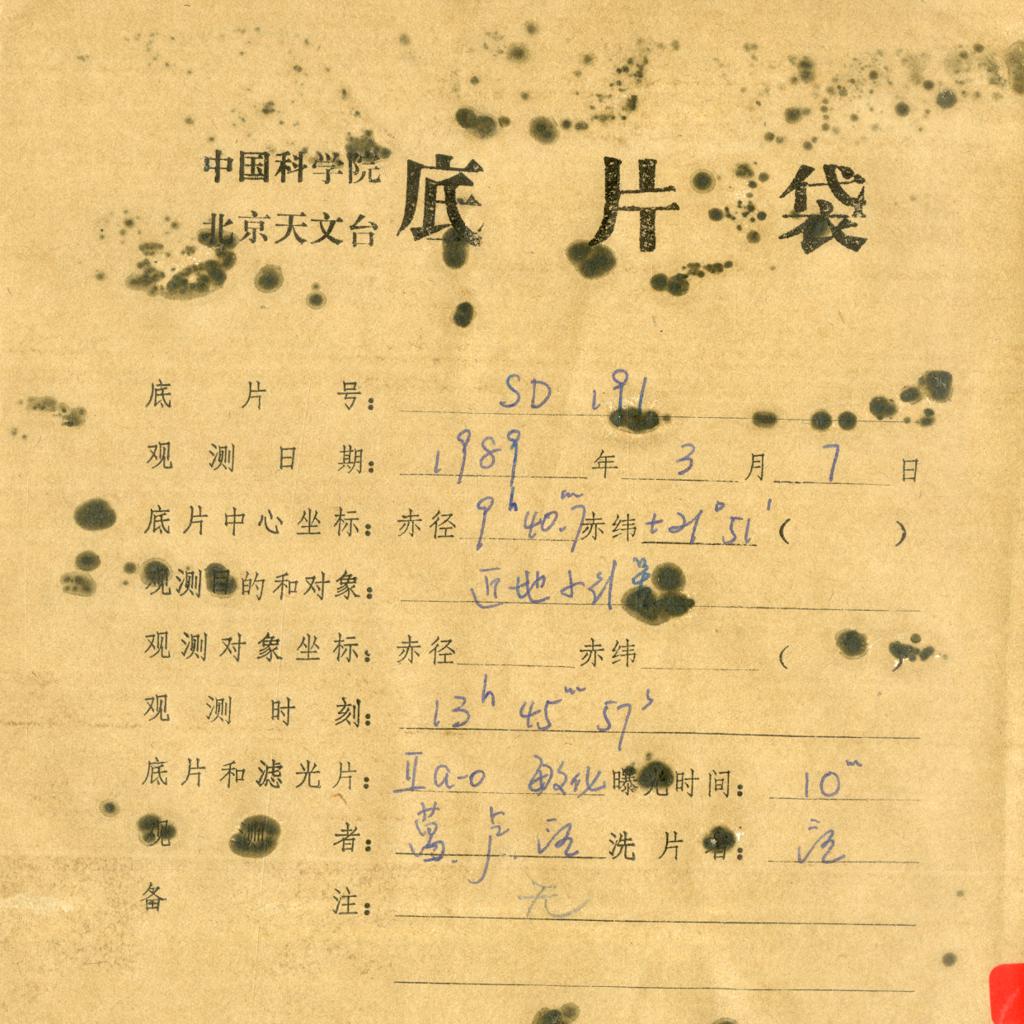 中国科学院
北京天文台
底片袋
底片号： SD 191
观测日期： 1989 年 3 月 7 日
底片中心坐标： 赤径 9h 40m.7 赤纬 +21° 51' ( )
观测目的和对象： 近地小行
观测对象坐标： 赤径 赤纬 ( )
观测时刻： 13h 45m 57s
底片和滤光片： IIa-0 敏化 曝光时间： 10m
观测者： 卢. 汪 洗片者： 汪
备注： 无